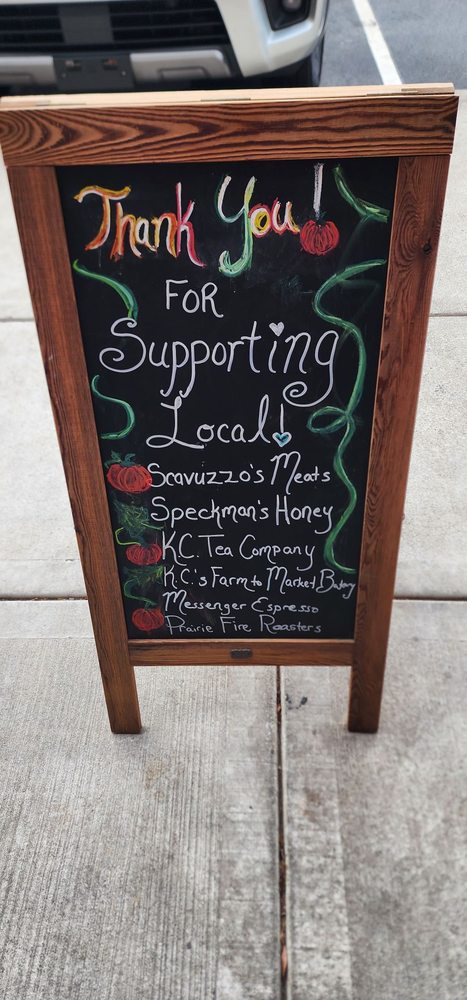 Thank You!
FOR
Supporting
Local!
Scavuzzo's Meats
Speckman's Honey
K.C. Tea Company
K.C.'s Farm to Market Bakery
Messenger Espresso
Prairie Fire Roasters